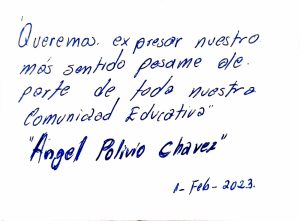 "Queremos. expresar nuestro
más sentido pesame de.
parte de toda nuestra
Comunidad Educativa"
"Ángel Polivio Chavez"
1-Feb-2023.